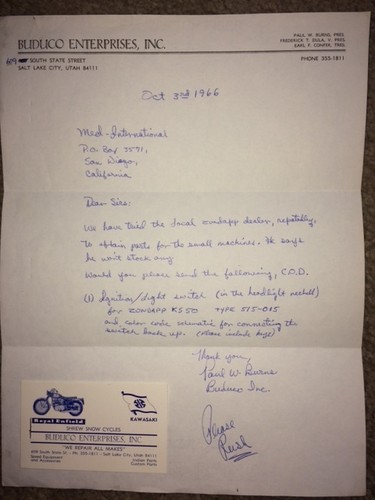 BUDUCO ENTERPRISES, INC.
PAUL W. BURNS, PRES.
FREDERICK T. DULA, V. PRES.
EARL F. CONFER, TRES.
609 SOUTH STATE STREET
SALT LAKE CITY, UTAH 84111
PHONE 355-1811
Oct 3rd 1966
Med-International
P.O. Box 3591,
San Diego,
California
Dear Sirs:
We have tried the local zundapp dealer, repeatedly,
to obtain parts for the small machines. He says
he won't stock any
Would you please send the following, C.O.D.
(1) Ignition/Light switch (in the headlight
for ZUNDAPP KS50 TYPE 515-015
and color code schematic for connecting the
switch back up. (Please include keys)
Thank you,
Paul W. Burns
Buduco Inc.
Please
Rush
Royal Enfield
KAWASAKI
SHREW SNOW CYCLES
BUDUCO ENTERPRISES, INC.
"WE REPAIR ALL MAKES"
609 South State St - Ph. 355-1811 - Salt Lake City, Utah 84111
Speed Equipment
and Accessories
Indian Parts
Custom Parts